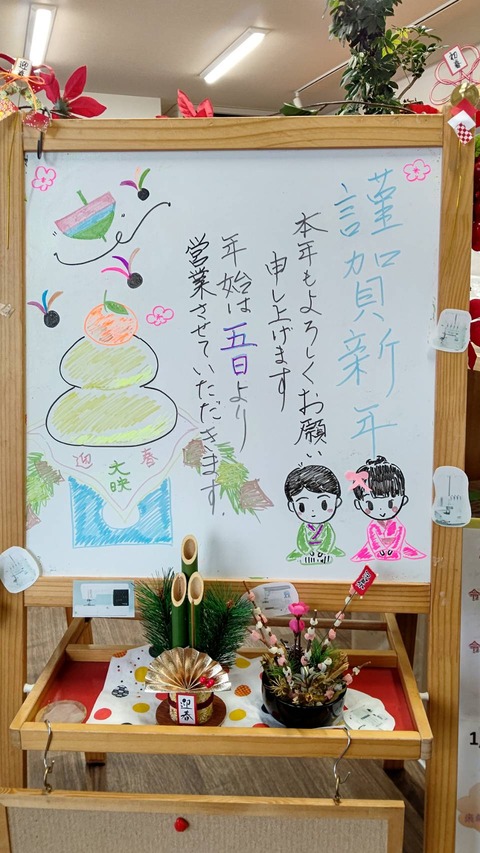 謹賀新年
本年もよろしくお願い
申し上げます
年始は五日より
営業させていただきます。
迎 春
大映
迎春
初春
迎春